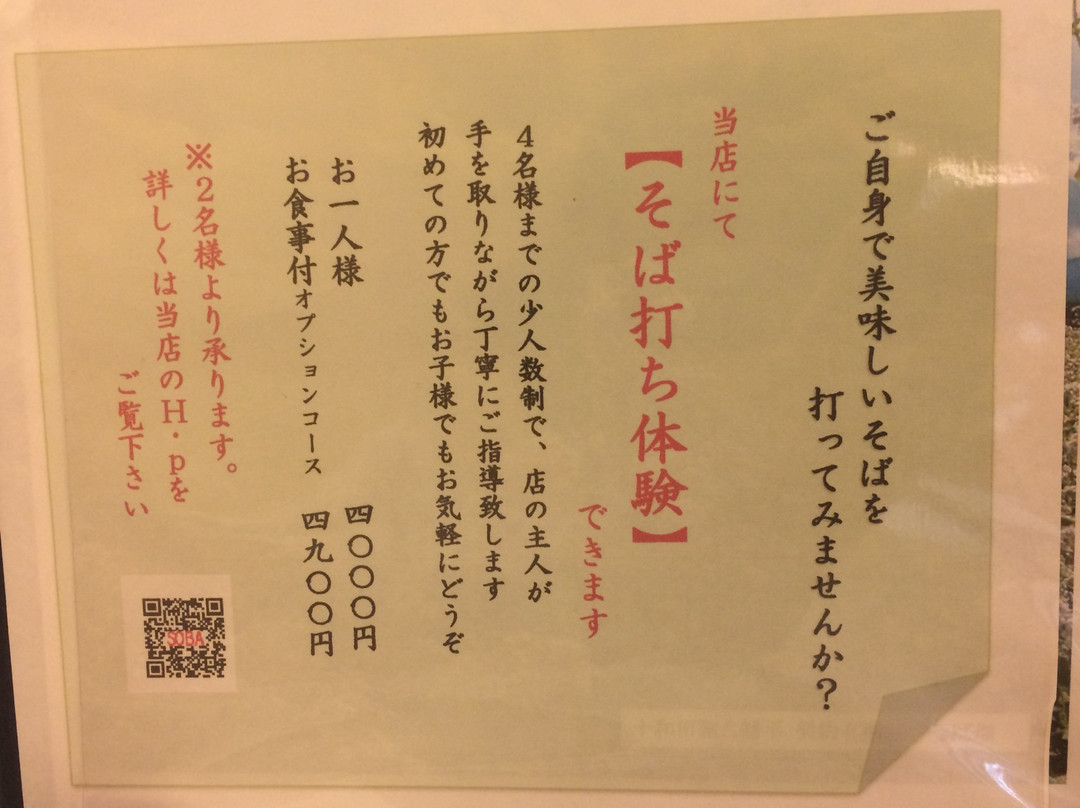 ご自身で美味しいそばを
打ってみませんか？
当店にて
【そば打ち体験】
できます
４名様までの少人数制で、店の主人が
手を取りながら丁寧にご指導致します
初めての方でもお子様でもお気軽にどうぞ
お一人様　四〇〇〇円
お食事付オプションコース　四九〇〇円
※２名様より承ります。
詳しくは当店のＨ・ｐを
ご覧下さい
SOBA